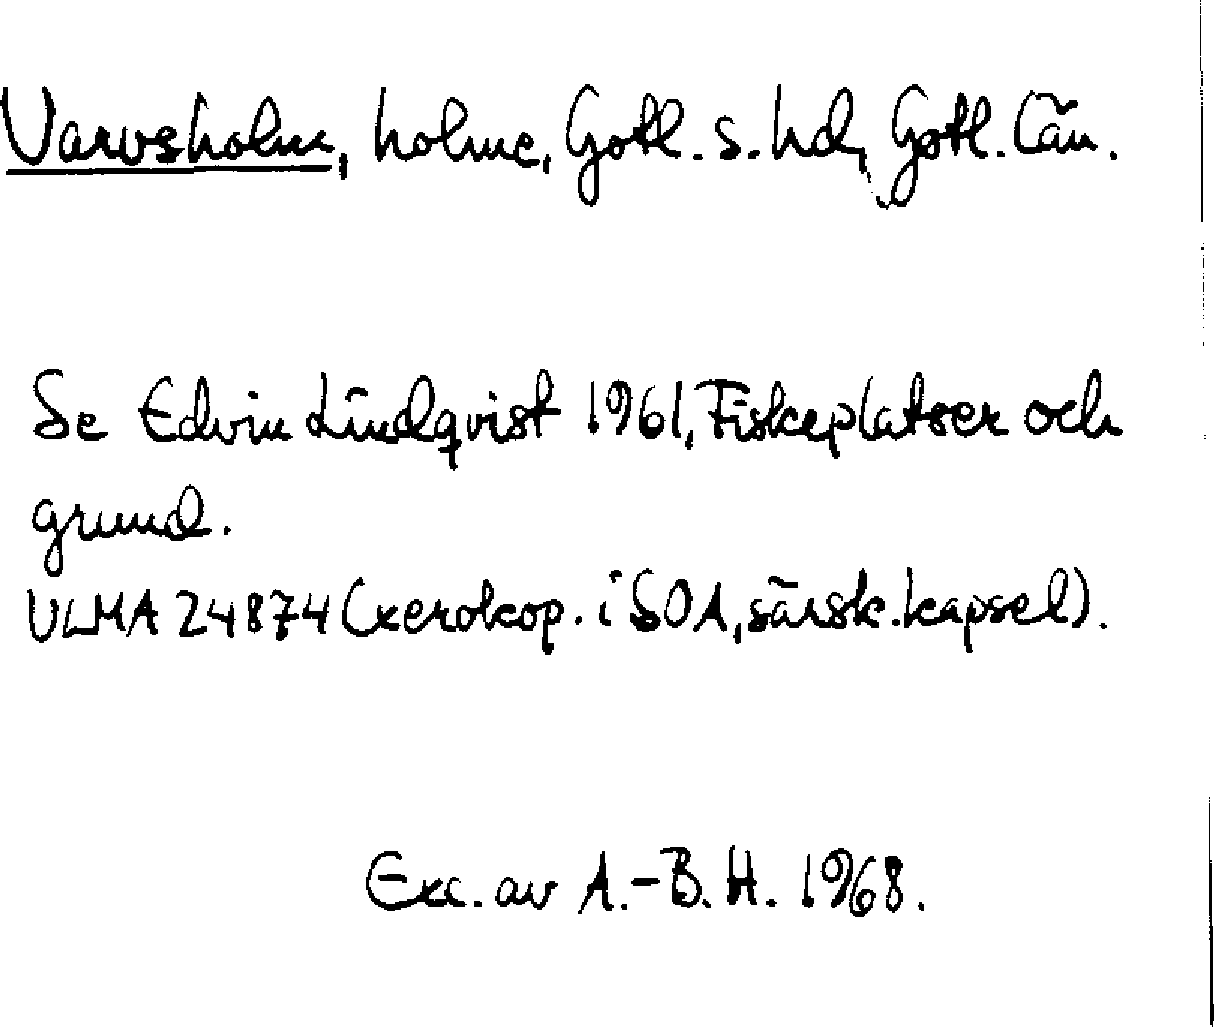 Varvsholm, holme, Gotl. s. hd, Gotl. län.
Se Edvin Lindqvist 1961, Fiskeplatser och
grund.
ULMA 24874 (xerokop. i SOA, särsk. kapsel).
Exc. av A.-B. H. 1968.